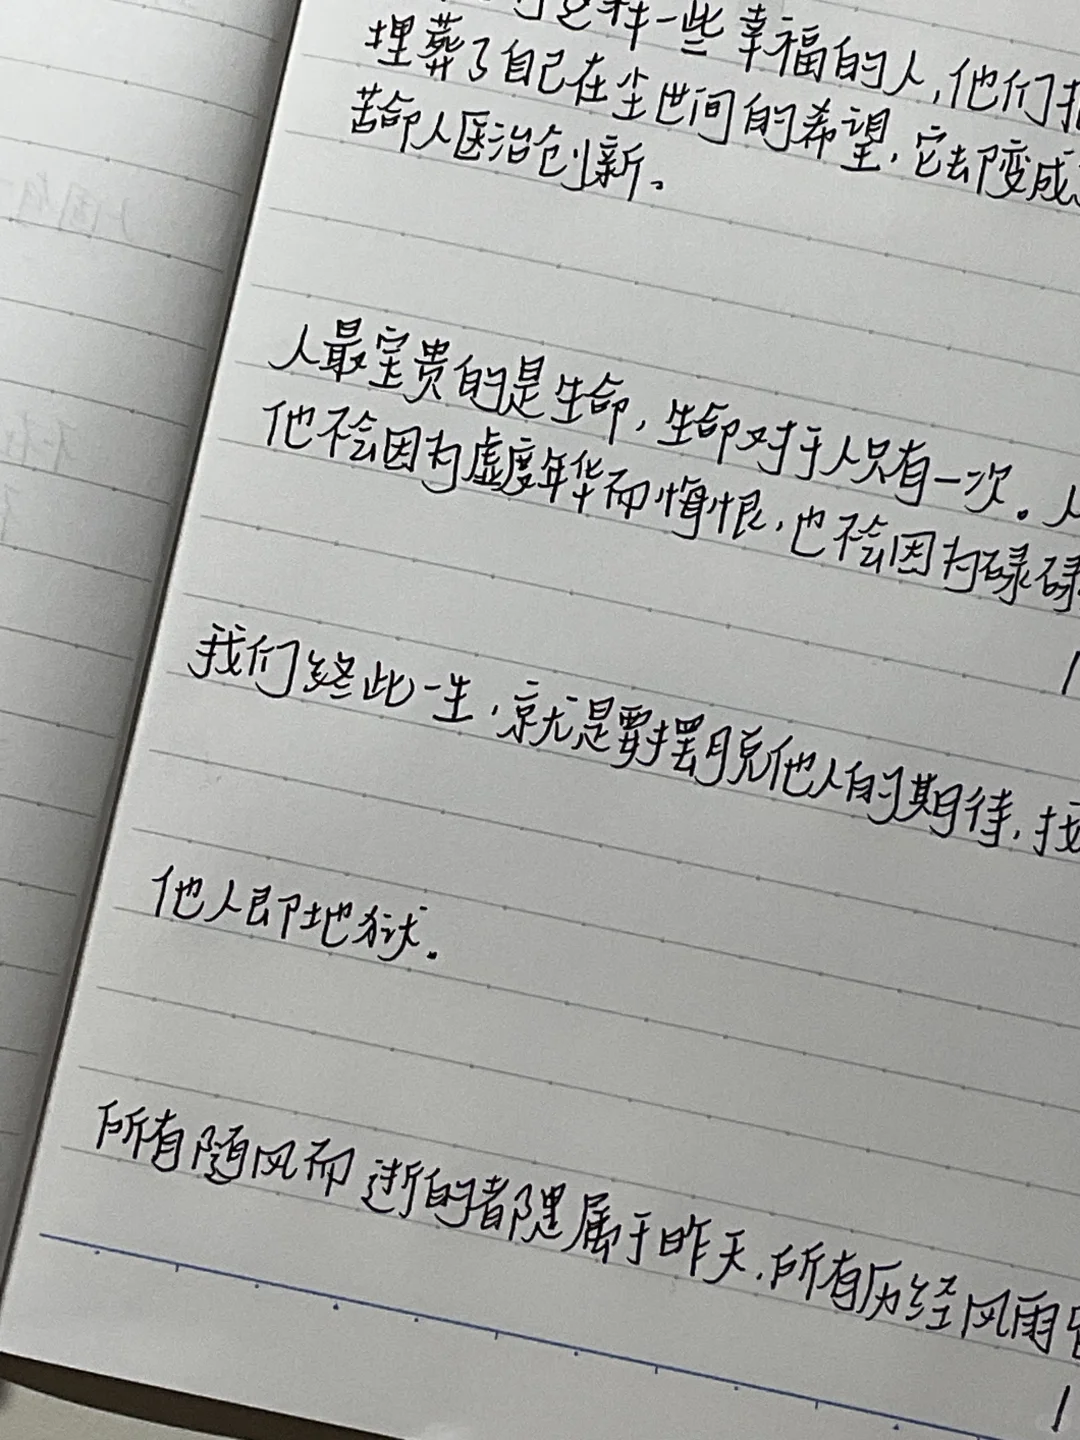 一些幸福的人，他们
埋葬了自己在尘世间的希望，它却变成
苦命人医治创新。
人最宝贵的是生命，生命对于人只有一次。人
他不会因为虚度年华而悔恨，也不会因为碌碌
我们终此一生，就是要摆脱他人的期待，找
他人即地狱。
所有随风而逝的都属于昨天，所有历经风雨